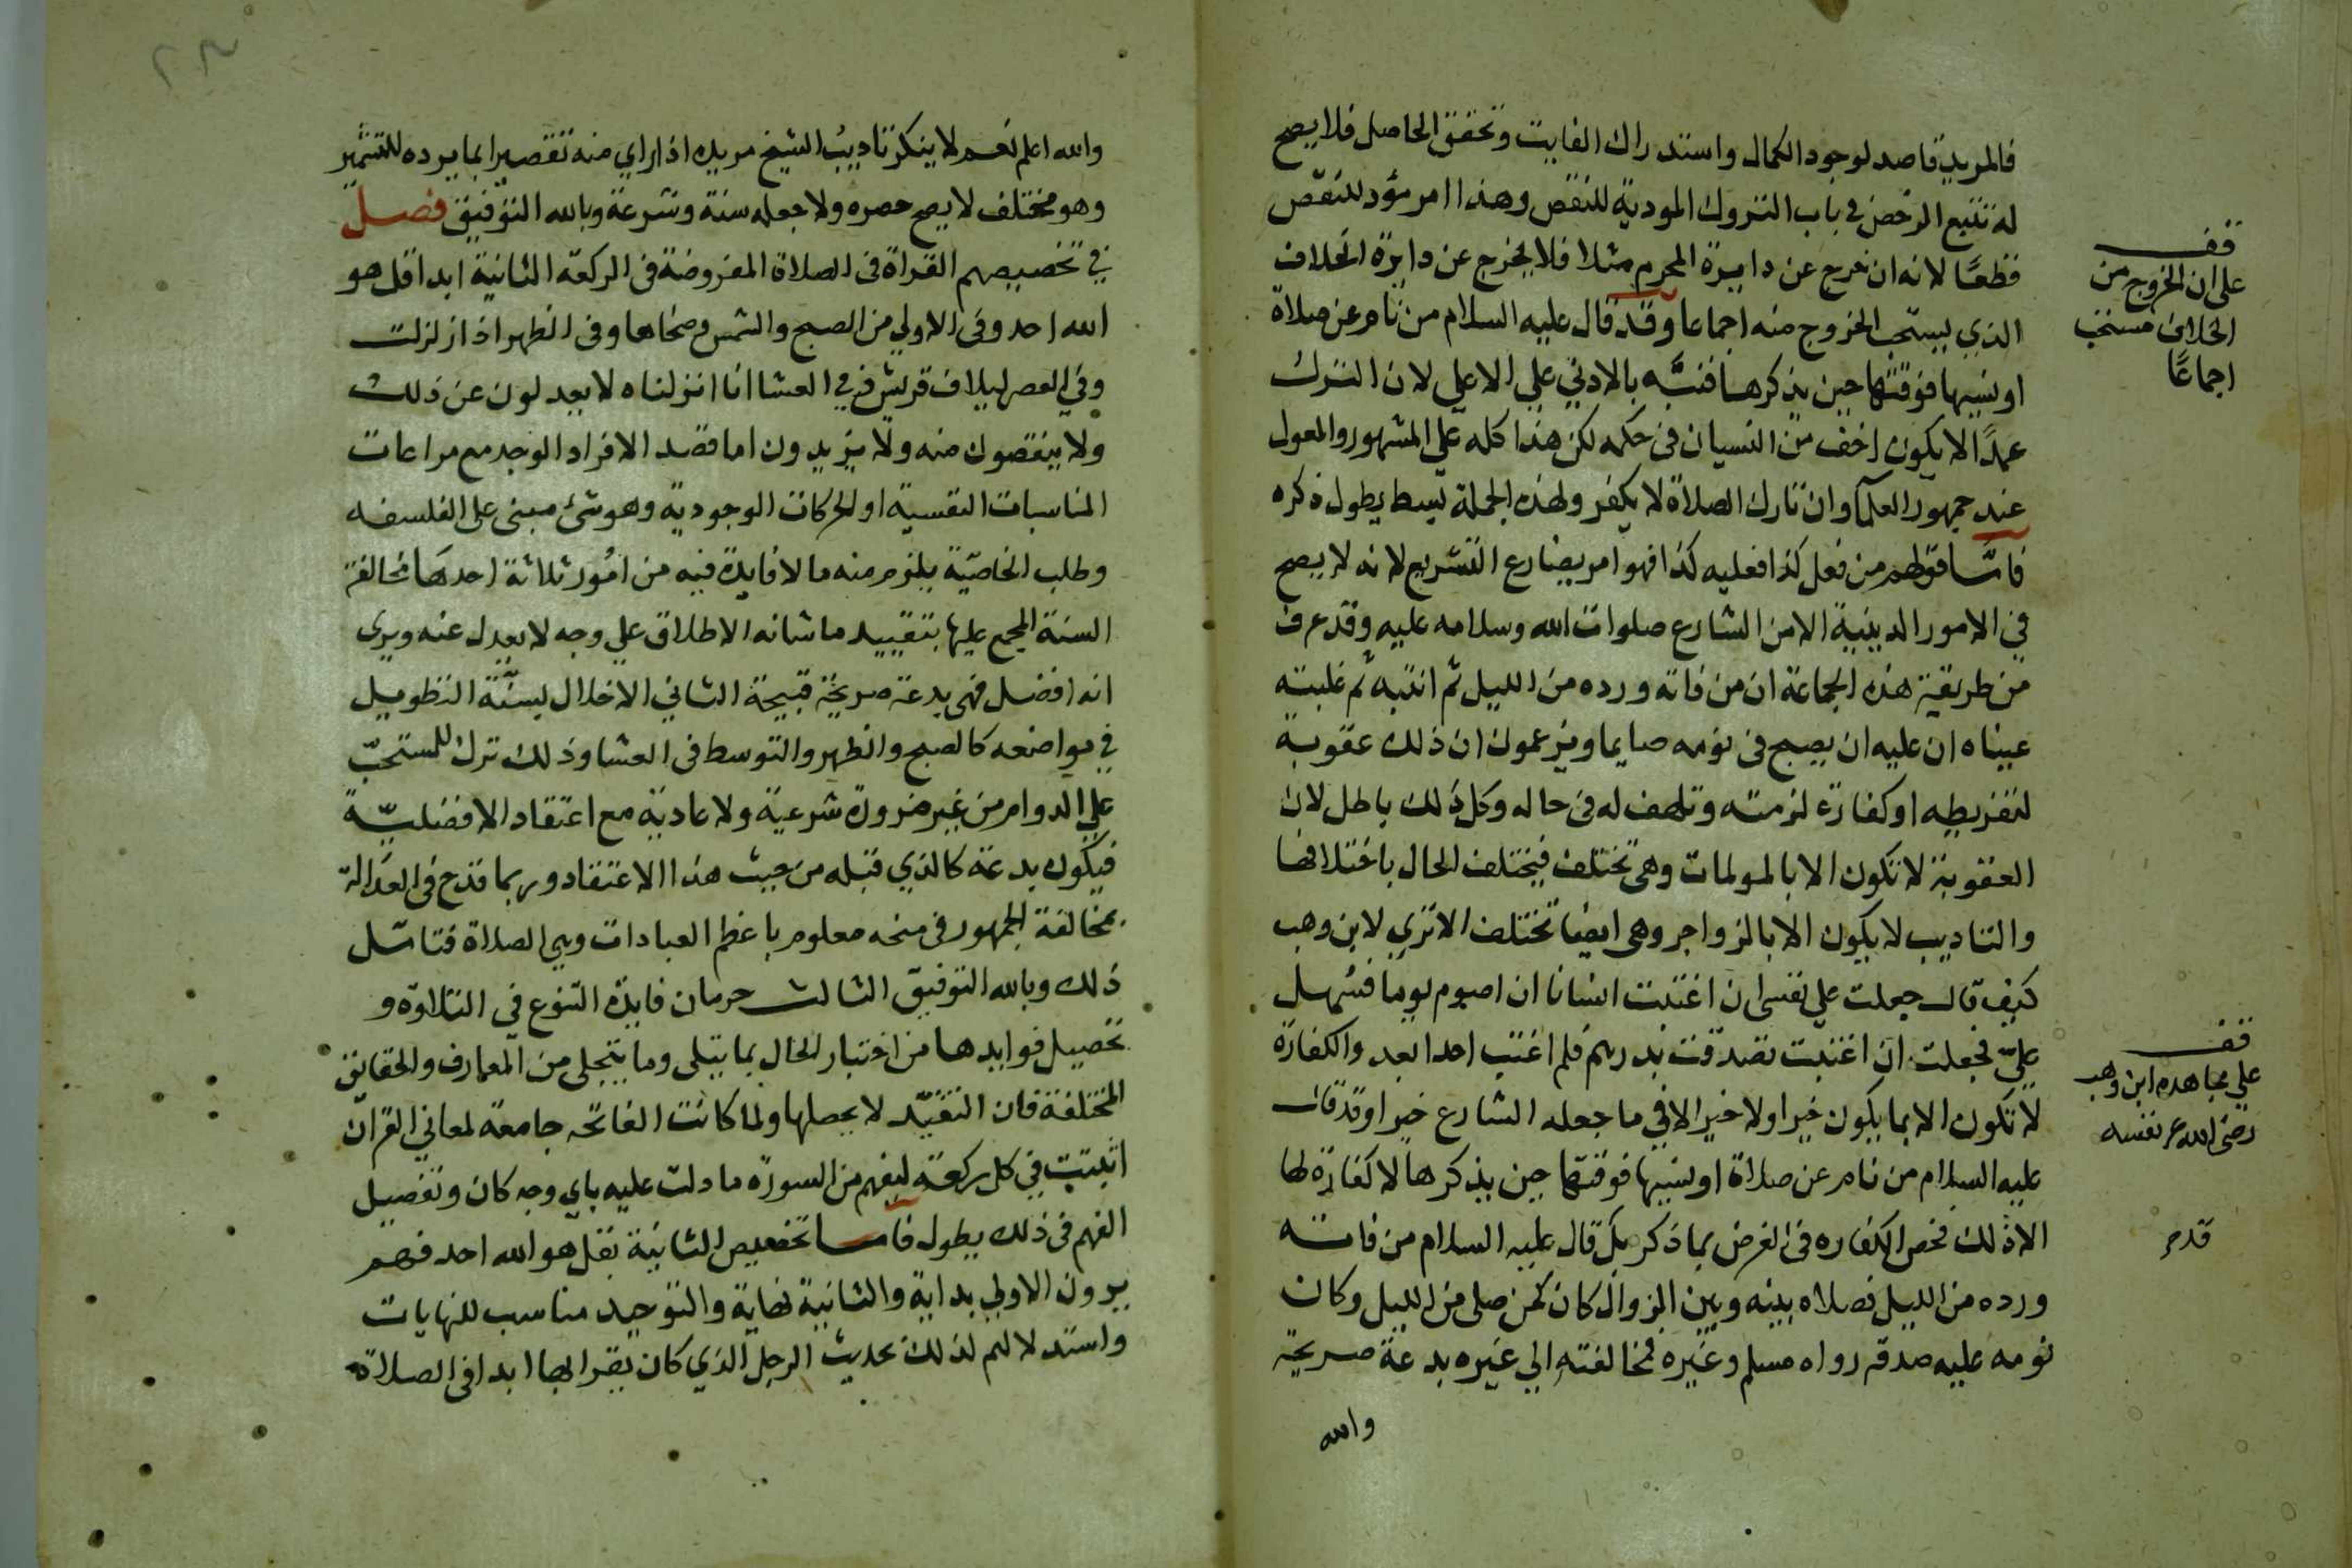 فالمريد قاصد لوجود الكمال واستدراك الفايت وتحقق الحاصل فلا يصح
له تتبع الرخص في باب التروك المودية للنقص وهذا امر مؤد للنقص
قطعًا لانه ان خرج عن دايرة المحرم مثلا فلا يخرج عن دايرة الخلاف
الذي يستحب الخروج منه اجماعا وقد قال عليه السلام من نام عن صلاة
او نسيها فوقتها حين يذكرها فنبَّه بالادني علي الاعلي لان الترك
عمدًا الا يكون اخف من النسيان في حكمه لكن هذا كله علي المشهور والمعول
عند جمهور العلما وان تارك الصلاة لا يكفر ولهذه الجملة بسط يطول ذكره
فامّا قولهم من فعل كذا فعليه كذا فهو امر يضارع التشريع لانه لا يصح
في الامور الدينية الا من الشارع صلوات الله وسلامه عليه وقد عرف
من طريقة هذه الجماعة ان من فاته ورده من الليل ثم انتبه ثم غلبته
عيناه ان عليه ان يصبح في يومه صايما ويزعمون ان ذلك عقوبة
لتفريطه او كفارة لزمته وتلهف له في حاله وكل ذلك باطل لان
العقوبة لا تكون الا بالمولمات وهي تختلف فيختلف الحال باختلافها
والتاديب لا يكون الا بالزواجر وهي ايضا تختلف الا تري لابن وهب
كيف قال جعلت علي نفسي ان اغتبت انسانا ان اصوم يوما فسُهل
عليّ فجعلت ان اغتبت تصدقت بدرهم فلم اغتب احدا بعد والكفارة
لا تكون الا بما يكون خيرا ولا خير الا في ما جعله الشارع خيرا وقد قال
عليه السلام من نام عن صلاة او نسيها فوقتها حين يذكرها لا كفارة لها
الا ذلك فخص الكفاره في الفرض بما ذكر بل قال عليه السلام من فاته
ورده من الليل فصلاه بينه وبين الزوال كان كمن صلي من الليل وكان
نومه عليه صدقة رواه مسلم وغيره فمخالفته الي غيره بدعة صريحة
والله
قف
علي ان الخروج من
الخلاف مستحب
اجماعًا
قف
علي مجاهده ابن وهب
رضي الله عن نفسه
والله اعلم نعم لا ينكر تاديبُ الشيخ مريده اذا راي منه تقصيرا بما يرده للتشمير
وهو مختلف لا يصح حصره ولا جعله سنة وشرعة وبالله التوفيق فصل
في تخصيصهم القراة في الصلاة المفروضة في الركعة الثانية ابدا قل هو
الله احد وفي الاولي من الصبح والشمس وضحاها وفي الظهر اذا زلزلت
وفي العصر ليلاف قريش وفي العشا انا انزلناه لا يعدلون عن ذلك
ولا ينقصون منه ولا يزيدون اما قصد الافراد الوجد مع مراعات
المناسبات النفسية او الحركات الوجودية وهو شئ مبني علي الفلسفه
وطلب الخاصّية يلزم منه ما لا فايدة فيه من امُور ثلاثة احدها مخالفة
السنة المجمع عليها بتقييد ما شانه الاطلاق علي وجه لا يعدل عنه ويري
انه افضل فهي بدعة صريحة قبيحة الثاني الاخلال بسنّة التطويل
في مواضعه كالصبح والظهر والتوسط في العشا وذلك ترك للمستحبّ
علي الدوام من غير ضرورة شرعية ولا عادية مع اعتقاد الافضليّة
فيكون بدعة كالذي قبله من حيث هذا الاعتقاد وربما قدح في العدالة
بمخالفة الجمهور في منحه معلوم باعظم العبادات وهي الصلاة فتامّل
ذلك وبالله التوفيق الثالث حرمان فايدة التنوع في التلاوة و
تحصيل فوايدها من اختبار الحال بما يتلي وما يتجلي من المعارف والحقايق
المختلفة فان التقيّد لا يحصلها ولما كانت الفاتحه جامعة لمعاني القران
اثبتت في كل ركعة ليفهم من السورة ما دلت عليه باي وجه كان وتفصيل
الفهم في ذلك يطول فاما تخصيص الثانية بقل هو الله احد فهم
يرون الاولي بداية والثانية نهاية والتوحيد مناسب للنهايات
واستدلالهم لذلك بحديث الرجل الذي كان يقرا بها ابدا في الصلاة